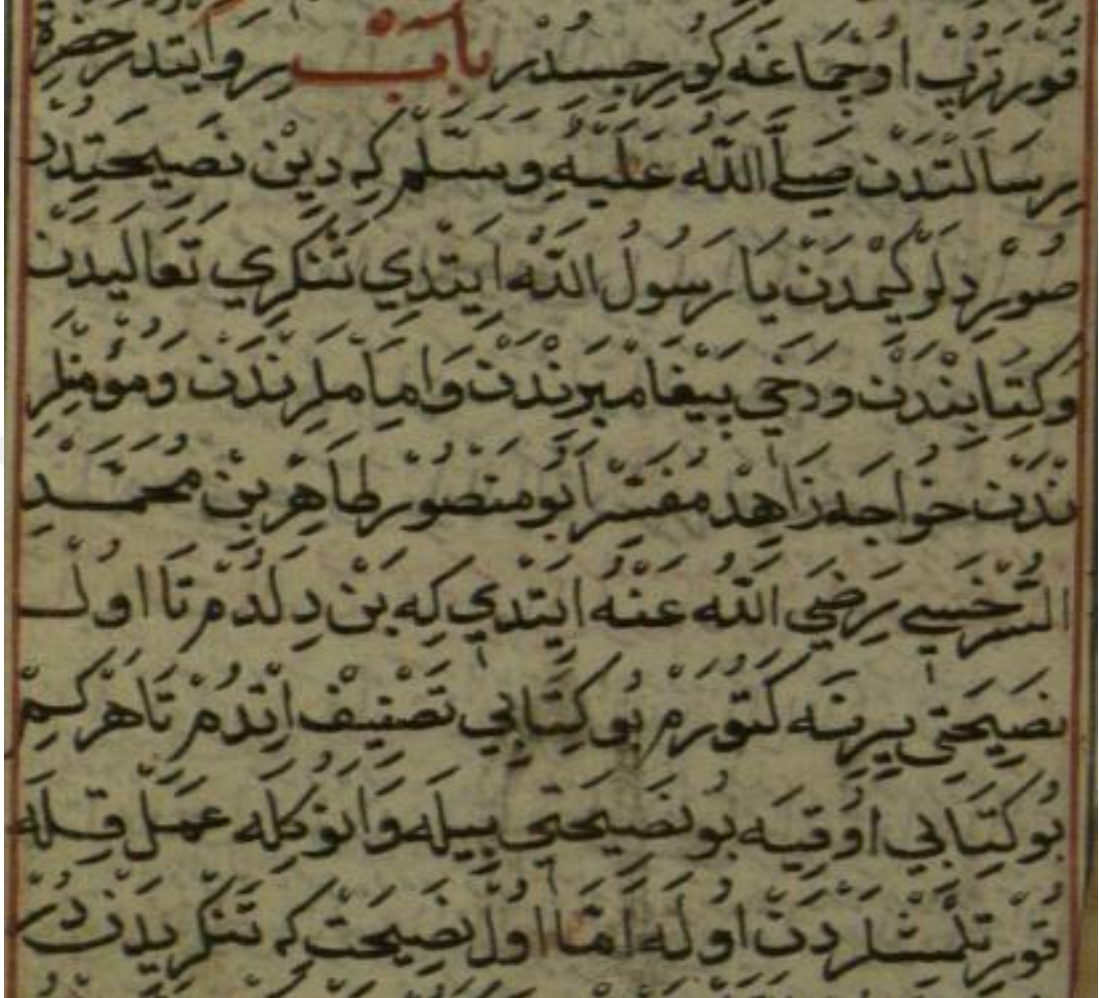 قُورْتَرُپْ اُوچْمَاغَه كُورِجِسِدُرْ بَابْ رِوَايَتْدُرْ حَضْرَةِ
رِسَالَتْدَنْ صَلَّى اللّٰهُ عَلَيْهِ وَسَلَّمَ كِه دِينْ نَصِيحَتْدُرْ
صُورْدِلَرْ كِيمْدَنْ يَا رَسُولَ اللّٰه اَيِتْدِي تَنْكرِي تَعَالَيدَنْ
وَكِتَابِنْدَنْ وَدَخِي پَيْغَامْبَرِنْدَنْ وَاِمَامْلَرِنْدَنْ وَمُؤْمِنْلَرِ
نْدَنْ خَوَاجَه زَاهِدْ مُفَسِّرْ اَبُو مَنْصُورْ طَاهِرْ بِنْ مُحَمَّدِ
السَّرَخْسِي رَضِيَ اللّٰهُ عَنْهُ اَيِتْدِي كِه بَنْ دِلَدُمْ تَا اُولْ
نَصِيحَتِي يِيرِينَه كَتُورَمْ بُو كِتَابِي تَصْنِيفْ اِتْدُمْ تَا هَرْ كِيمْ
بُو كِتَابِي اُوقِيَه بُو نَصِيحَتِي بِيلَه وَانُوكِلَه عَمَلْ قِلَه
قُورْتِلْمِشْلَرْدَنْ اُولَه اَمَّا اُولْ نَصِيحَتْ كِه تَنْكرِيدَنْدُرْ